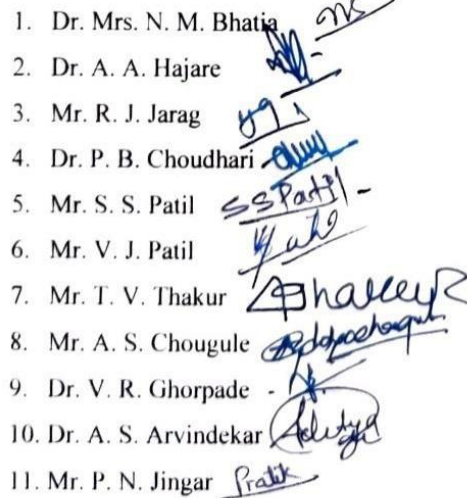 1. Dr. Mrs. N. M. Bhatia
2. Dr. A. A. Hajare
3. Mr. R. J. Jarag
4. Dr. P. B. Choudhari
5. Mr. S. S. Patil SSPatil
6. Mr. V. J. Patil
7. Mr. T. V. Thakur
8. Mr. A. S. Chougule
9. Dr. V. R. Ghorpade -
10. Dr. A. S. Arvindekar Aditya
11. Mr. P. N. Jingar Pratik